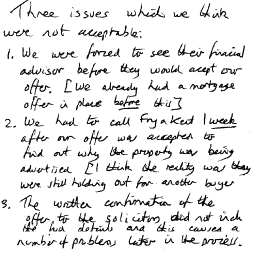 Three issues which we think
were not acceptable:
1. We were forced to see their financial
advisor before they would accept our
offer. [We already had a mortgage
offer in place before this]
2. We had to call Fry & Kent 1 week
after our offer was accepted to
find out why the property was being
advertised [I think the reality was they
were still holding out for another buyer
3. The written confirmation of the
offer, to the solicitors, did not
the full details and this caused a
number of problems later in the process.